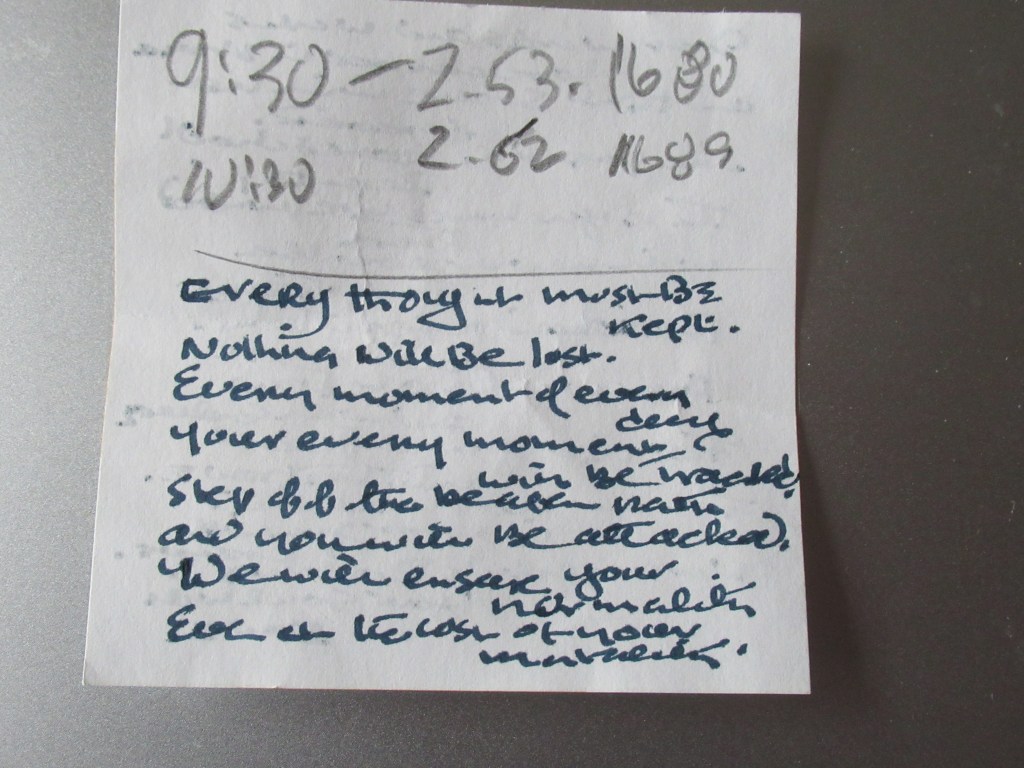 9:30 — 2.53. 1680
10:30 2.62 1689.
Every thought must BE
Kept.
Nothing will Be lost.
Every moment of every
day
your every moment
will Be tracked!
Step off the beaten path
and you will Be attacked.
We will ensure your
normality
Even at the cost of your